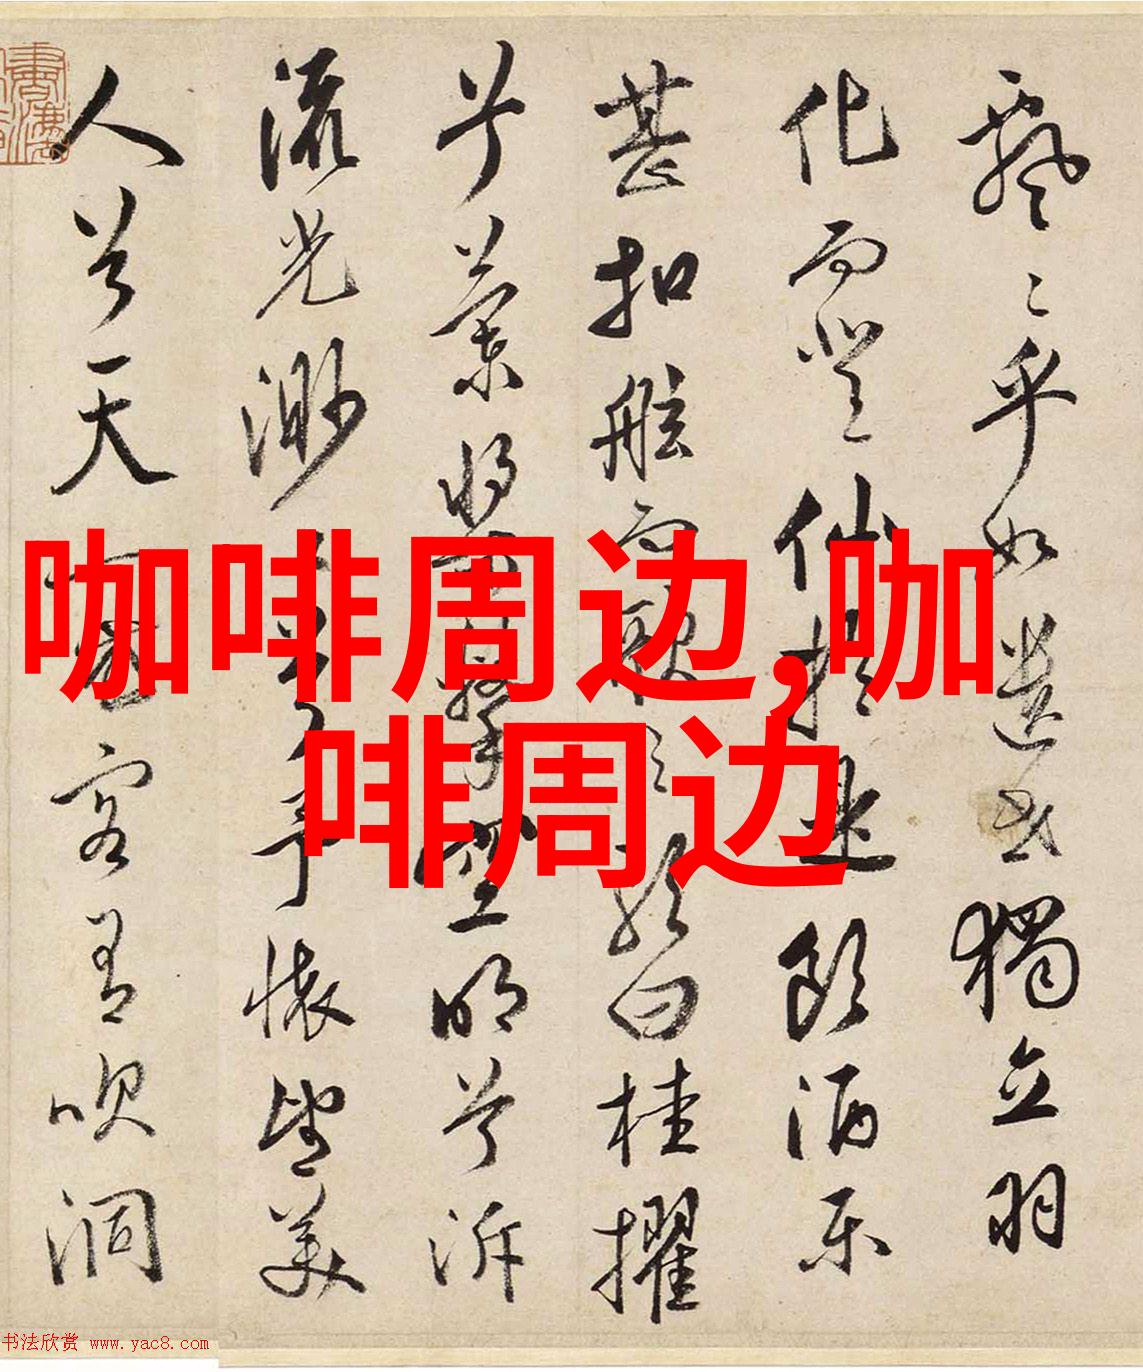 飘〻乎如遗世獨立羽
化而登仙於是飲酒乐
甚扣舷而歌之歌曰桂擢
兮蘭槳擊空明兮泝
流光渺〻兮予懷望美
人兮天一方客有吹洞
咖啡周边,咖
啡周边
书法欣赏 www.yac8.com